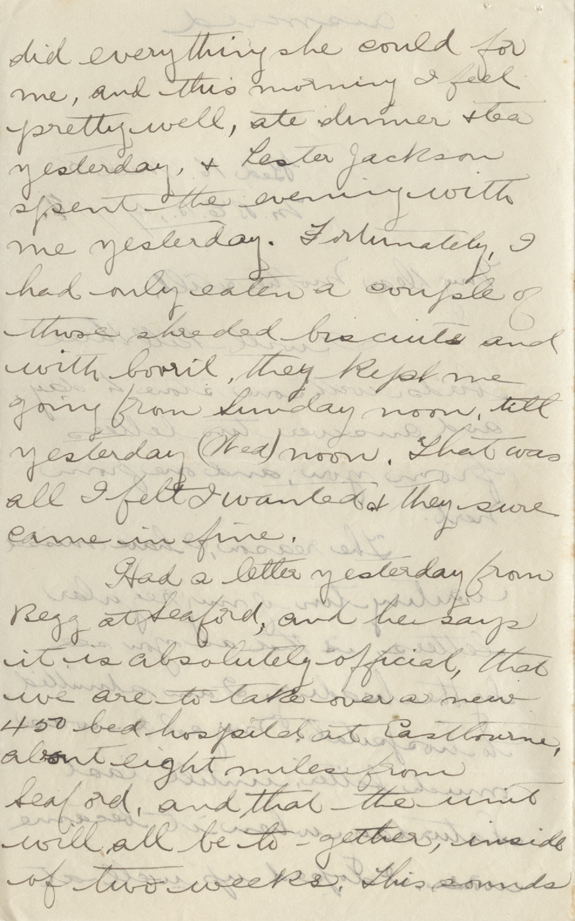 did everything she could for
me, and this morning I feel
pretty well, ate dinner & tea
yesterday, & Lester Jackson
spent the evening with
me yesterday. Fortunately, I
had only eaten a couple of
those shreded biscuits and
with bovril, they kept me
going from Sunday noon, till
yesterday (Wed) noon. That was
all I felt I wanted & they sure
came in fine.
Had a letter yesterday from
Begg at Seaford, and he says
it is absolutely official, that
we are to take over a new
450 bed hospital at Eastbourne,
about eight miles from
Seaford, and that the unit
will all be to-gether, inside
of two weeks. This sounds